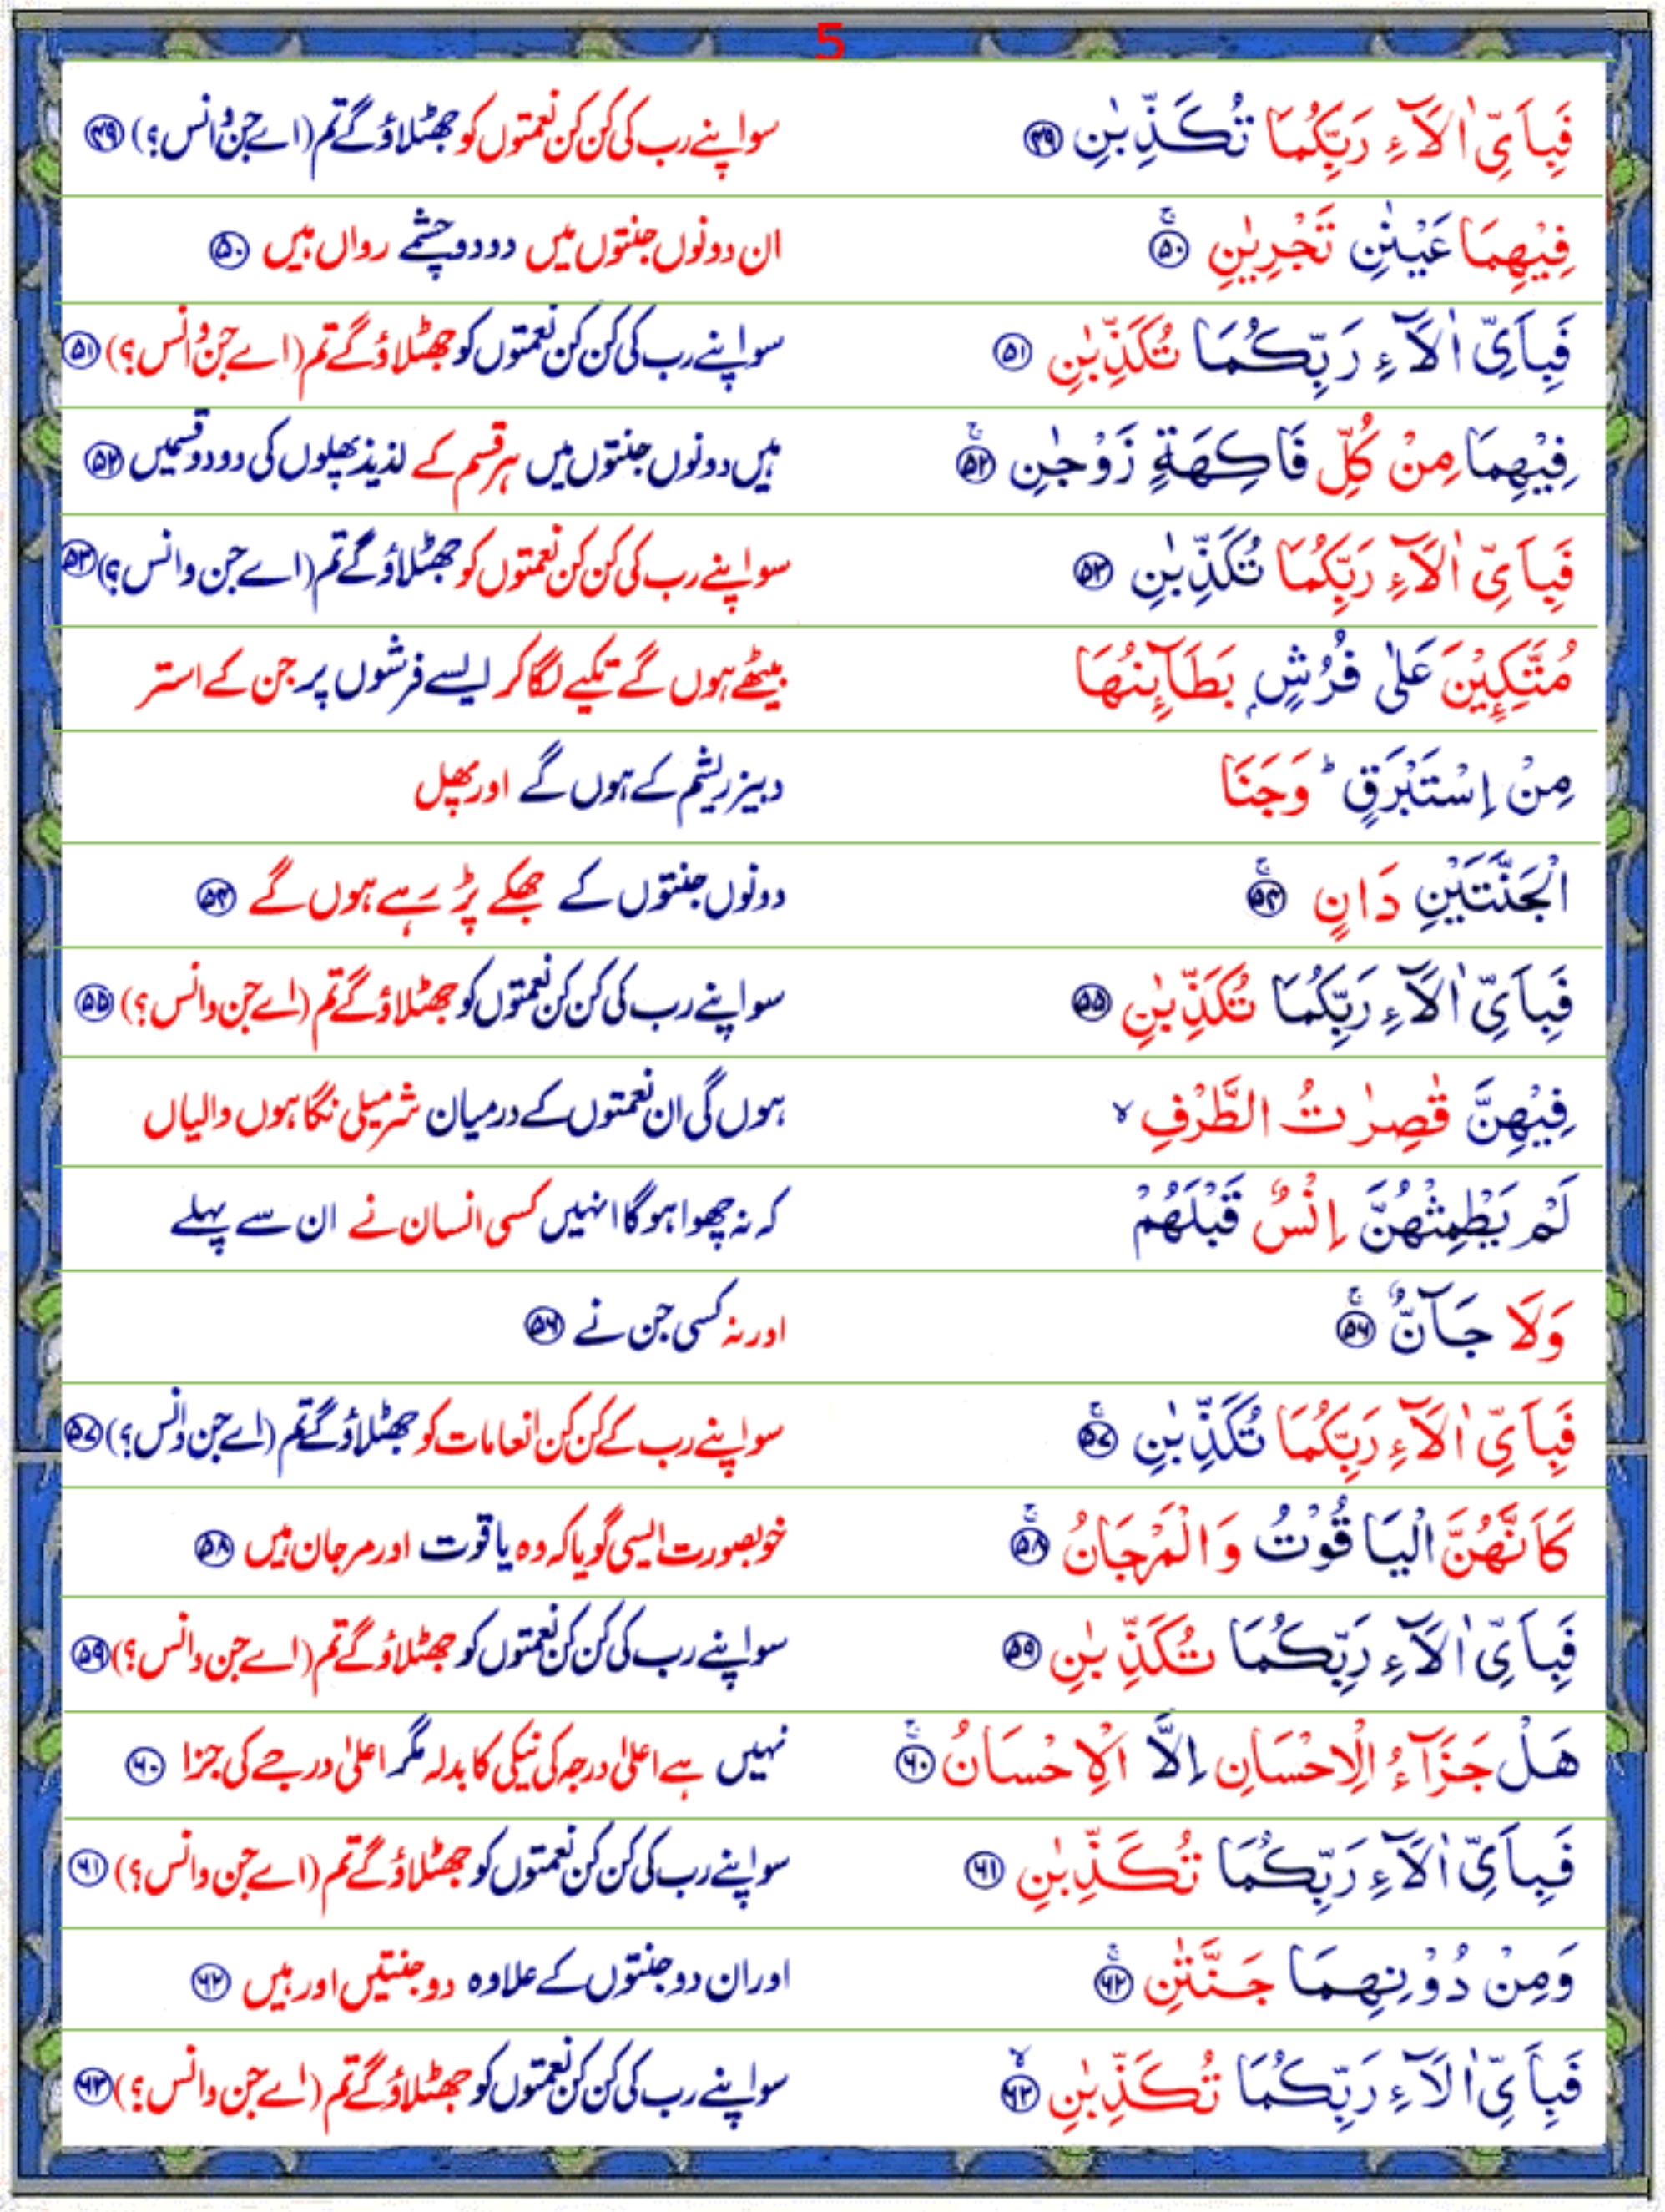 5
فَبِاَىِّ اٰلَآءِ رَبِّكُمَا تُكَذِّبٰنِ ﴿۴۹﴾ سو اپنے رب کی کن کن نعمتوں کو جھٹلاؤ گے تم (اے جن و انس؟) ﴿۴۹﴾
فِيْهِمَا عَيْنٰنِ تَجْرِيٰنِ ۚ﴿۵۰﴾ ان دونوں جنتوں میں دو دو چشمے رواں ہیں ﴿۵۰﴾
فَبِاَىِّ اٰلَآءِ رَبِّكُمَا تُكَذِّبٰنِ ﴿۵۱﴾ سو اپنے رب کی کن کن نعمتوں کو جھٹلاؤ گے تم (اے جن و انس؟) ﴿۵۱﴾
فِيْهِمَا مِنْ كُلِّ فَاكِهَةٍ زَوْجٰنِ ۚ﴿۵۲﴾ ہیں دونوں جنتوں میں ہر قسم کے لذیذ پھلوں کی دو دو قسمیں ﴿۵۲﴾
فَبِاَىِّ اٰلَآءِ رَبِّكُمَا تُكَذِّبٰنِ ﴿۵۳﴾ سو اپنے رب کی کن کن نعمتوں کو جھٹلاؤ گے تم (اے جن و انس؟) ﴿۵۳﴾
مُتَّكِـِٕيْنَ عَلٰى فُرُشٍۭ بَطَآىِٕنُهَا بیٹھے ہوں گے تکیے لگا کر ایسے فرشوں پر جن کے استر
مِنْ اِسْتَبْرَقٍ ؕ وَجَنَا دبیز ریشم کے ہوں گے اور پھل
الْجَنَّتَيْنِ دَانٍ ۚ﴿۵۴﴾ دونوں جنتوں کے جھکے پڑ رہے ہوں گے ﴿۵۴﴾
فَبِاَىِّ اٰلَآءِ رَبِّكُمَا تُكَذِّبٰنِ ﴿۵۵﴾ سو اپنے رب کی کن کن نعمتوں کو جھٹلاؤ گے تم (اے جن و انس؟) ﴿۵۵﴾
فِيْهِنَّ قٰصِرٰتُ الطَّرْفِ ۙ ہوں گی ان نعمتوں کے درمیان شرمیلی نگاہوں والیاں
لَمْ يَطْمِثْهُنَّ اِنْسٌ قَبْلَهُمْ کہ نہ چھوا ہوگا انہیں کسی انسان نے ان سے پہلے
وَلَا جَآنٌّ ۚ﴿۵۶﴾ اور نہ کسی جن نے ﴿۵۶﴾
فَبِاَىِّ اٰلَآءِ رَبِّكُمَا تُكَذِّبٰنِ ۚ﴿۵۷﴾ سو اپنے رب کے کن کن انعامات کو جھٹلاؤ گے تم (اے جن و انس؟) ﴿۵۷﴾
كَاَنَّهُنَّ الْيَاقُوْتُ وَالْمَرْجَانُ ۚ﴿۵۸﴾ خوبصورت ایسی گویا کہ وہ یاقوت اور مرجان ہیں ﴿۵۸﴾
فَبِاَىِّ اٰلَآءِ رَبِّكُمَا تُكَذِّبٰنِ ﴿۵۹﴾ سو اپنے رب کی کن کن نعمتوں کو جھٹلاؤ گے تم (اے جن و انس؟) ﴿۵۹﴾
هَلْ جَزَآءُ الْاِحْسَانِ اِلَّا الْاِحْسَانُ ۚ﴿۶۰﴾ نہیں ہے اعلیٰ درجہ کی نیکی کا بدلہ مگر اعلیٰ درجے کی جزا ﴿۶۰﴾
فَبِاَىِّ اٰلَآءِ رَبِّكُمَا تُكَذِّبٰنِ ﴿۶۱﴾ سو اپنے رب کی کن کن نعمتوں کو جھٹلاؤ گے تم (اے جن و انس؟) ﴿۶۱﴾
وَمِنْ دُوْنِهِمَا جَنَّتٰنِ ۚ﴿۶۲﴾ اور ان دو جنتوں کے علاوہ دو جنتیں اور ہیں ﴿۶۲﴾
فَبِاَىِّ اٰلَآءِ رَبِّكُمَا تُكَذِّبٰنِ ۙ﴿۶۳﴾ سو اپنے رب کی کن کن نعمتوں کو جھٹلاؤ گے تم (اے جن و انس؟) ﴿۶۳﴾